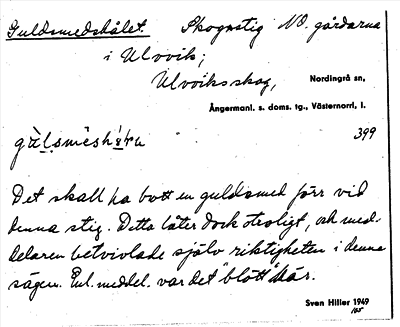 Guldsmedshålet. Skogsstig NO. gårdarna
i Ulvvik;
Ulvviksskog, Nordingrå sn,
Ångermanl. s. doms. tg., Västernorrl. l.
399
Det skall ha bott en guldsmed förr vid
denna stig. Detta låter dock otroligt, och med-
delaren betvivlade själv riktigheten i denna
sägen. Enl. meddel. var det "blött" här.
Sven Hiller 1949
165